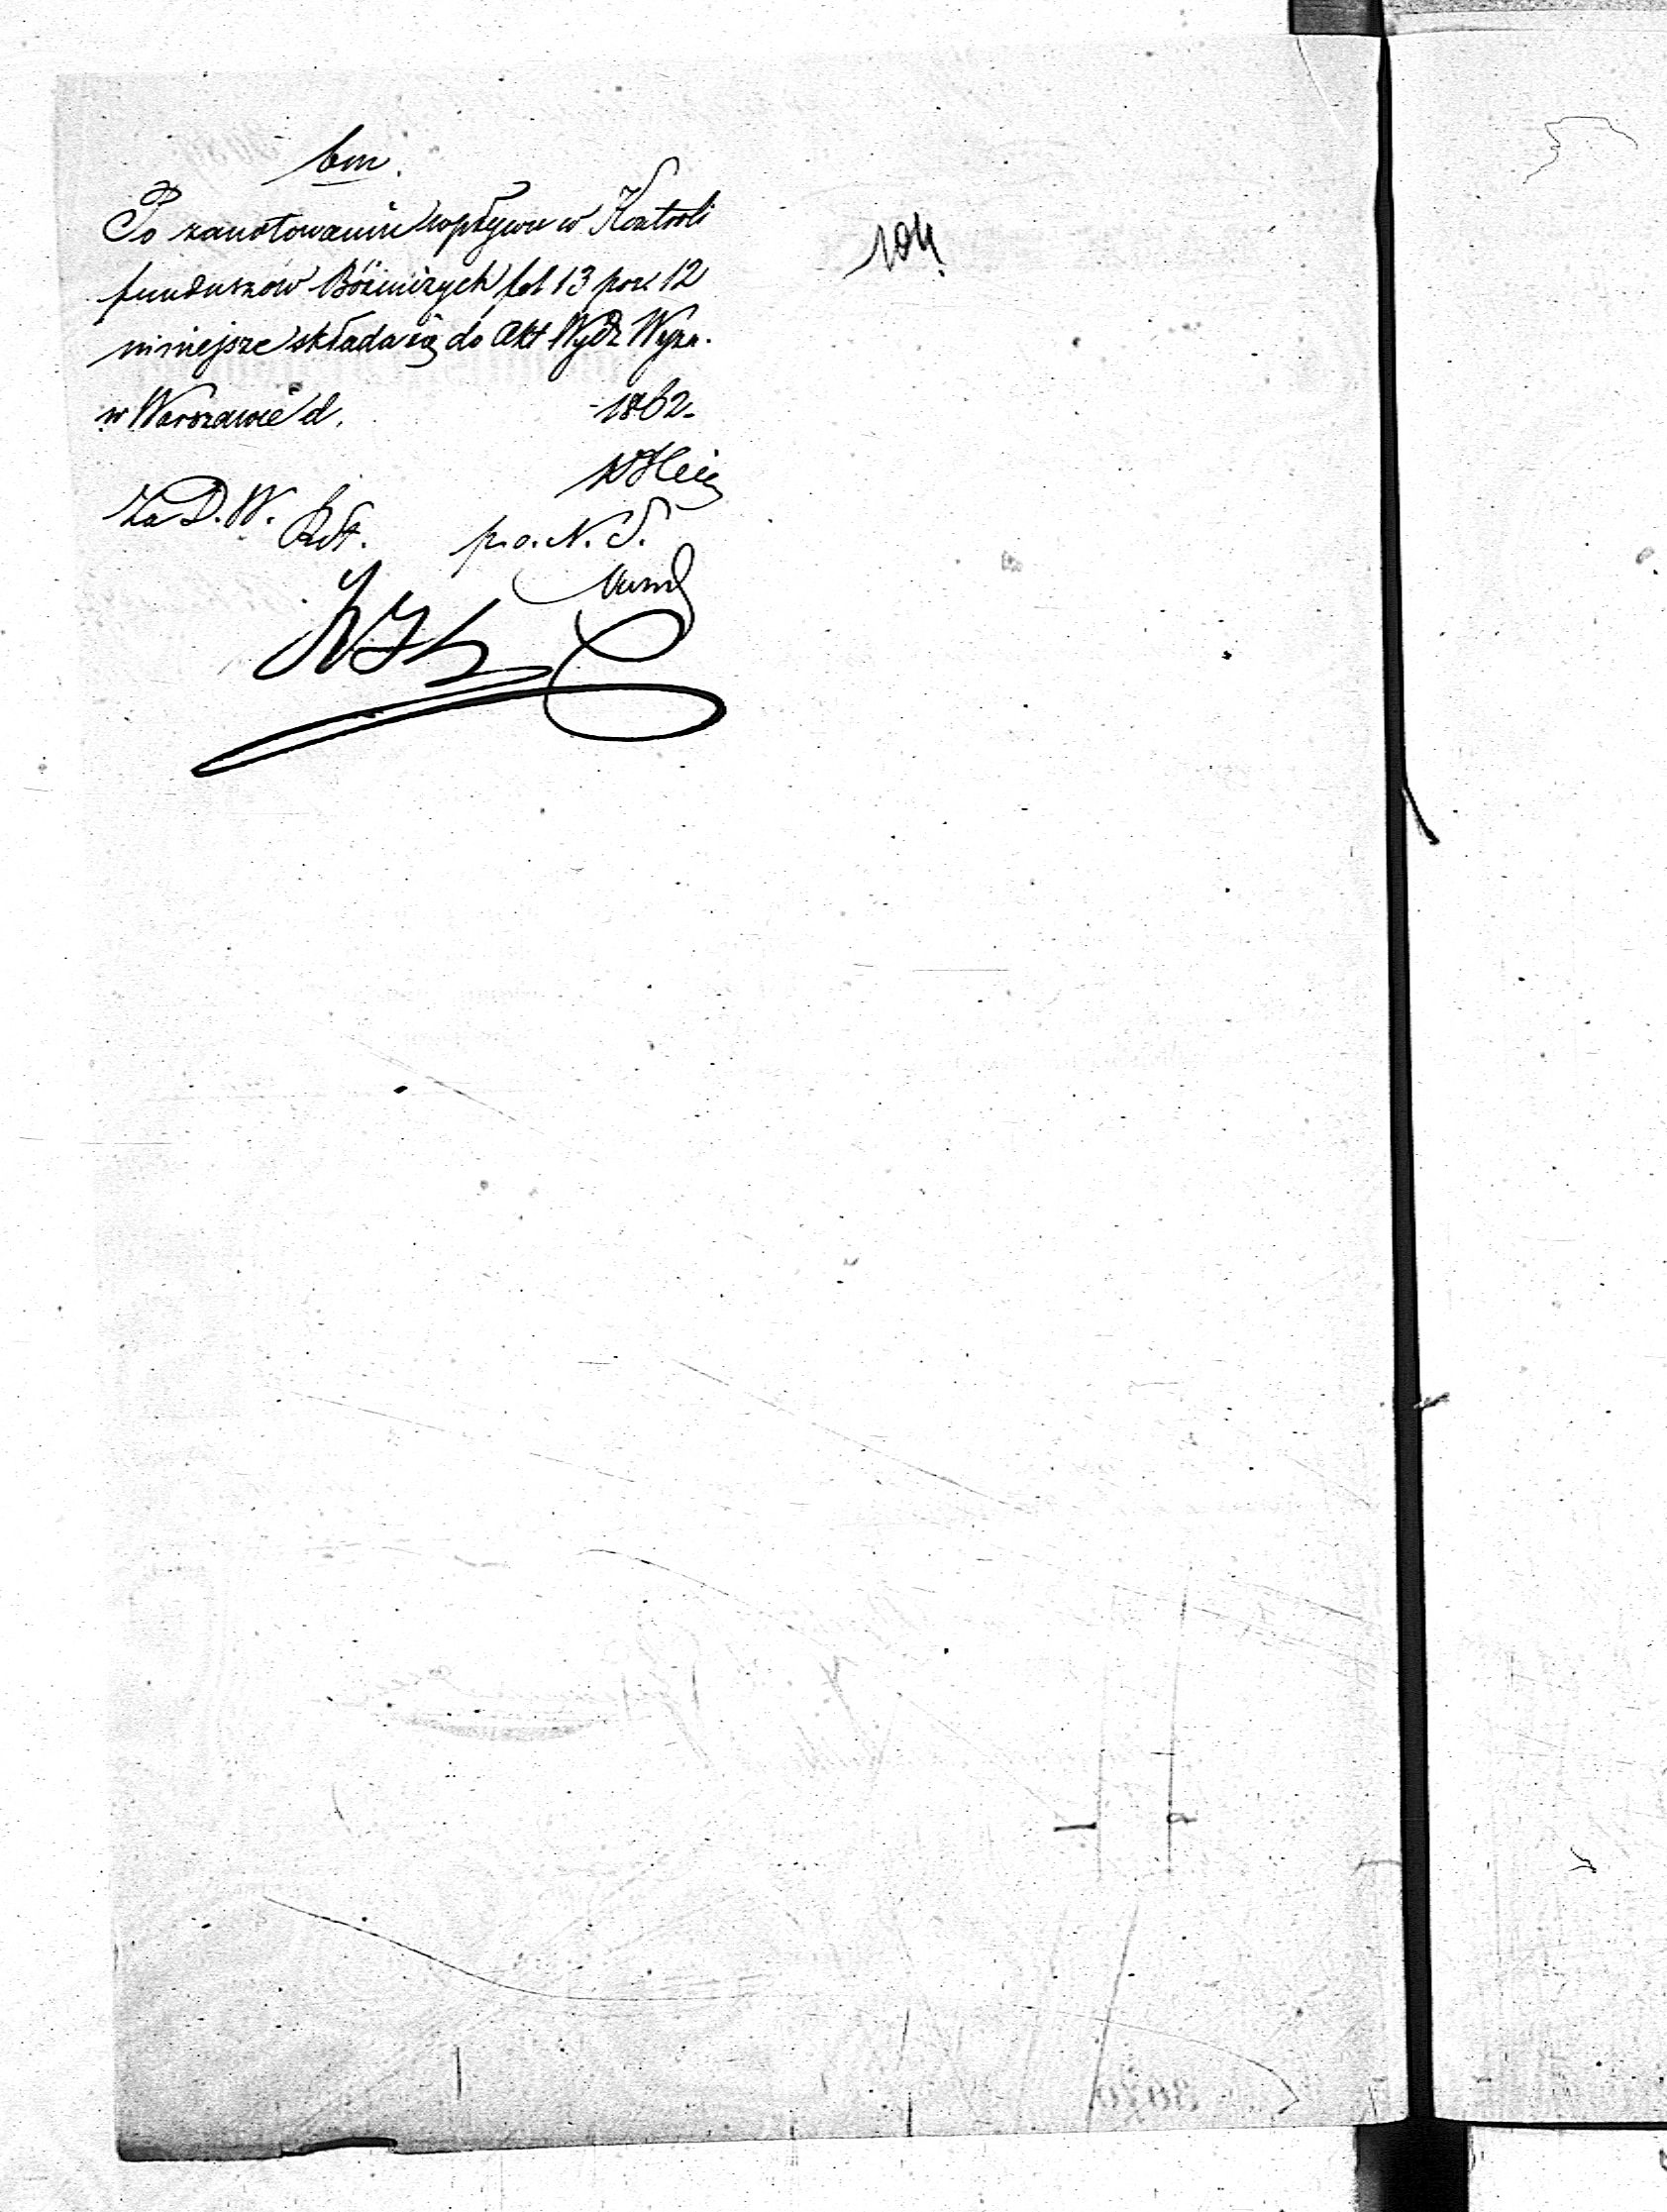 bm.
Po zanotowaniu wpływu w Kontroli
funduszów Bóżniczych fol 13 poz 12
niniejsze składa się do Akt Wydz Wyzn.
w Warszawie d. 1862.
Za D. W. p.o. N. S.
104.